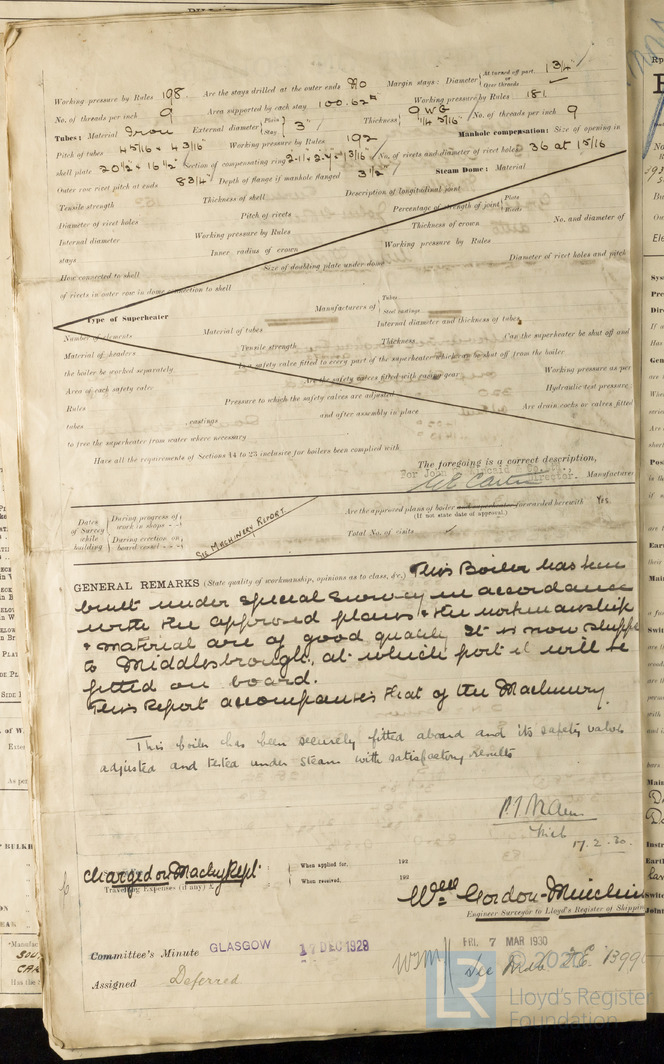 Working pressure by Rules 198. Are the stays drilled at the outer ends No Margin stays: Diameter { At turned off part, or Over threads 1 3/4"
No. of threads per inch 9 Area supported by each stay 100.62" Working pressure by Rules 181.
Tubes: Material Iron External diameter { Plain Stay 3" Thickness { 9 WG 1/4" 5/16" No. of threads per inch 9
Pitch of tubes 4 5/16 × 4 3/16" Working pressure by Rules 192 Manhole compensation: Size of opening in
shell plate 20 1/2 × 16 1/2" Section of compensating ring No. of rivets and diameter of rivet holes 36 at 15/16
Outer row rivet pitch at ends 8 3/4" Depth of flange if manhole flanged 3 1/2" Steam Dome: Material
Tensile strength Thickness of shell Description of longitudinal joint
Diameter of rivet holes Pitch of rivets Percentage of strength of joint { Plate Rivets
Internal diameter Working pressure by Rules Thickness of crown No. and diameter of
stays Inner radius of crown Working pressure by Rules
How connected to shell Size of doubling plate under dome Diameter of rivet holes and pitch
of rivets in outer row in dome connection to shell
Type of Superheater Manufacturers of { Tubes Steel castings
Number of elements Material of tubes Internal diameter and thickness of tubes
Material of headers Tensile strength Thickness Can the superheater be shut off and
the boiler be worked separately Is a safety valve fitted to every part of the superheater which can be shut off from the boiler
Area of each safety valve Are the safety valves fitted with easing gear Working pressure as per
Rules Pressure to which the safety valves are adjusted Hydraulic test pressure
tubes castings and after assembly in place Are drain cocks or valves fitted
to free the superheater from water where necessary
Have all the requirements of Sections 14 to 23 inclusive for boilers been complied with
The foregoing is a correct description,
For John Kincaid
Director. Manufacturer
Dates of Survey while building { During progress of work in shops - - During erection on board vessel - - - See Machinery Report.
Are the approved plans of boiler and superheater forwarded herewith Yes.
(If not state date of approval.)
Total No. of visits
GENERAL REMARKS (State quality of workmanship, opinions as to class, &c.) This Boiler has been
built under special survey in accordance
with the approved plans & the workmanship
& material are of good quality. It is now shipped
to Middlesbrough, at which port it will be
fitted on board.
This Report accompanies that of the Machinery.
This boiler has been securely fitted aboard and its safety valves
adjusted and tested under steam with satisfactory results
17.2.30.
Charged on Machy Rept.
Travelling Expenses (if any) £
When applied for, 192
When received, 192
Wm Gordon-
Engineer Surveyor to Lloyd's Register of Shipping
Committee's Minute GLASGOW 17 DEC 1929 FRI. 7 MAR 1930
Assigned Deferred
Lloyd's Register
Foundation